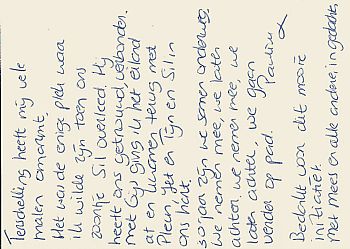 Terschelling heeft mij vele
malen omarmt.
Het was de enige plek waar
ik wilde zijn toen ons
zoontje Sil overleed. Hij
heeft ons getrouwd, verbonden.
met Gijs ging ik het eiland
af en kwamen terug met
Pleun, Yet en Tijn en Sil in
ons hart.
20 jaar zijn we samen onderweg.
We nemen mee, we laten
achter, we nemen mee, we
laten achter, we gaan
verder op pad. Pauline
Bedankt voor dit mooie
initiatief.
met mees en alle andere, in gedachten